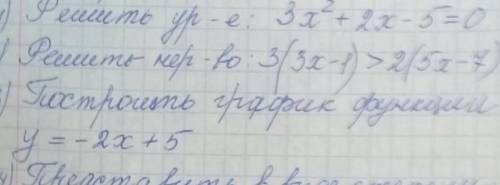 ) Решить ур-е: 3x²+2x-5=0
) Решить нер-во: 3(3x-1)>2(5x-7)
) Построить график функции
y=-2x+5
4) Представить в виде